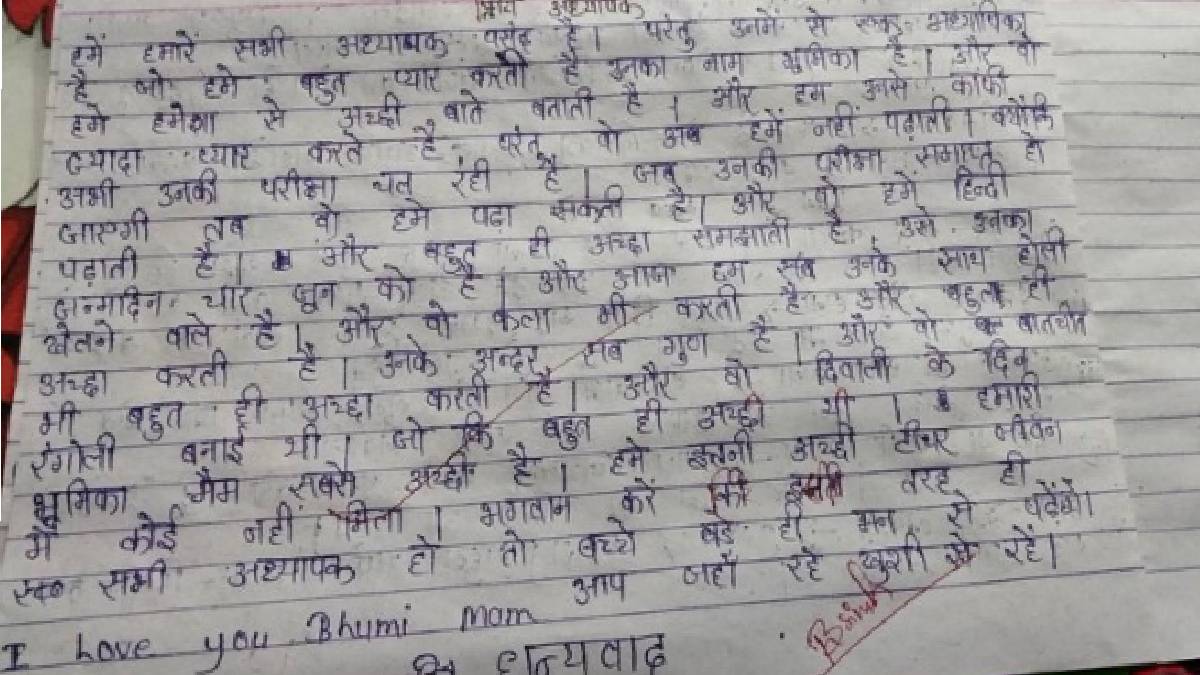 प्रिय अध्यापक
हमें हमारें सभी अध्यापक पसंद है। परंतु उनमें से एक अध्यापिका
है जो हमे बहुत प्यार करती है उनका नाम भूमिका है। और वो
हमे हमेशा से अच्छी बाते बताती है। और हम उनसे काफी
ज्यादा प्यार करते है परंतु वो अब हमें नहीं पढ़ाती। क्योंकि
अभी उनकी परीक्षा चल रंही है। जब उनकी परीक्षा समाप्त हो
जाएगी तब वो हमे पढा सकती है। और वो हमें हिन्दी
पढ़ाती है। और बहुत ही अच्छा समझाती है उसे उनका
जन्मदिन चार जून को है। और आज हम सब उनके साथ होली
खेलने वाले है। और वो कला भी करती है और बहुत ही
अच्छा करती है। उनके अन्दर सब गुण है। और वो बातचीत
भी बहुत ही अच्छा करती है। और वो दिवाली के दिन
रंगोली बनाई थी। जो कि बहुत ही अच्छी थी। हमारी
भूमिका मैम सबसे अच्छी है। हमे इतनी अच्छी टीचर जीवन
में कोई नही मिला। भगवान करें कि इसी तरह ही
सभी अध्यापक हो तो बच्चे बडे ही मन से पढ़ेंगे।
आप जहाँ रहे खुशी से रहें।
I Love you Bhumi Mam
धन्यवाद